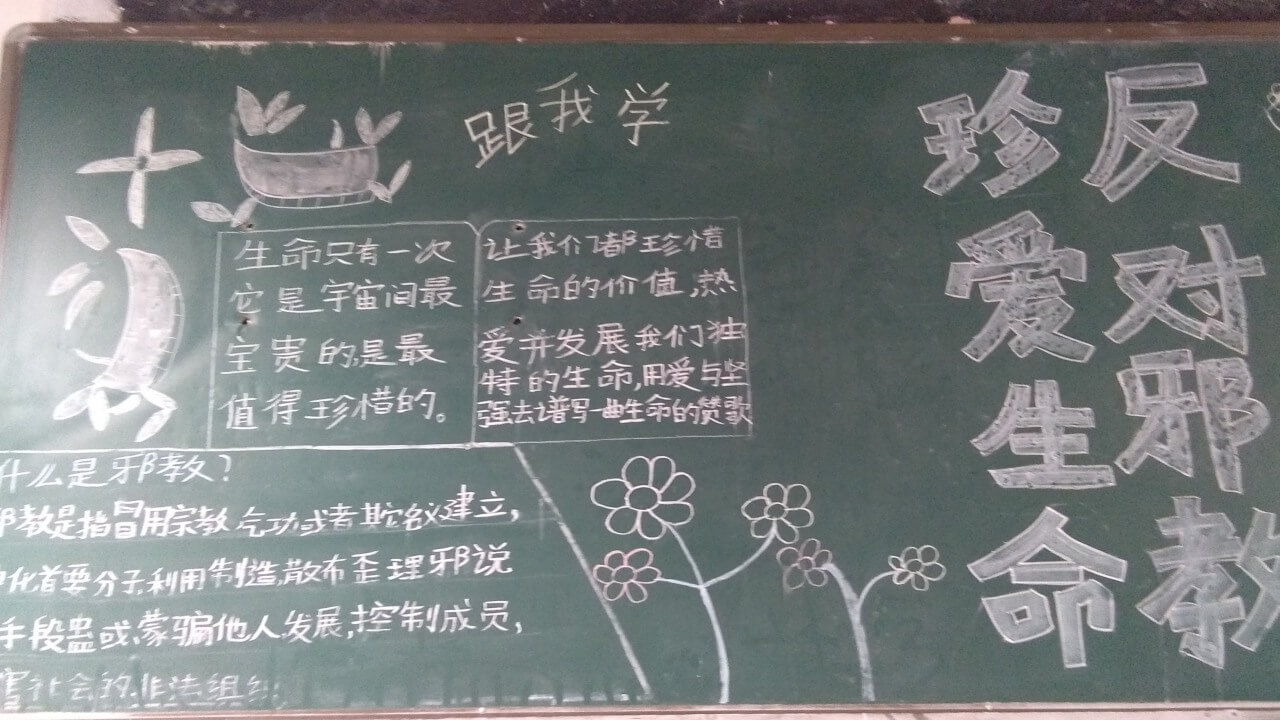 跟我学
反对邪教
珍爱生命
生命只有一次
它是宇宙间最
宝贵的,是最
值得珍惜的。
让我们都珍惜
生命的价值,热
爱并发展我们独
特的生命,用爱与坚
强去谱写一曲生命的赞歌
什么是邪教?
邪教是指冒用宗教气功或者其它名义建立,
神化首要分子,利用制造,散布歪理邪说
手段蛊或,蒙骗他人发展,控制成员,
害社会的非法组织